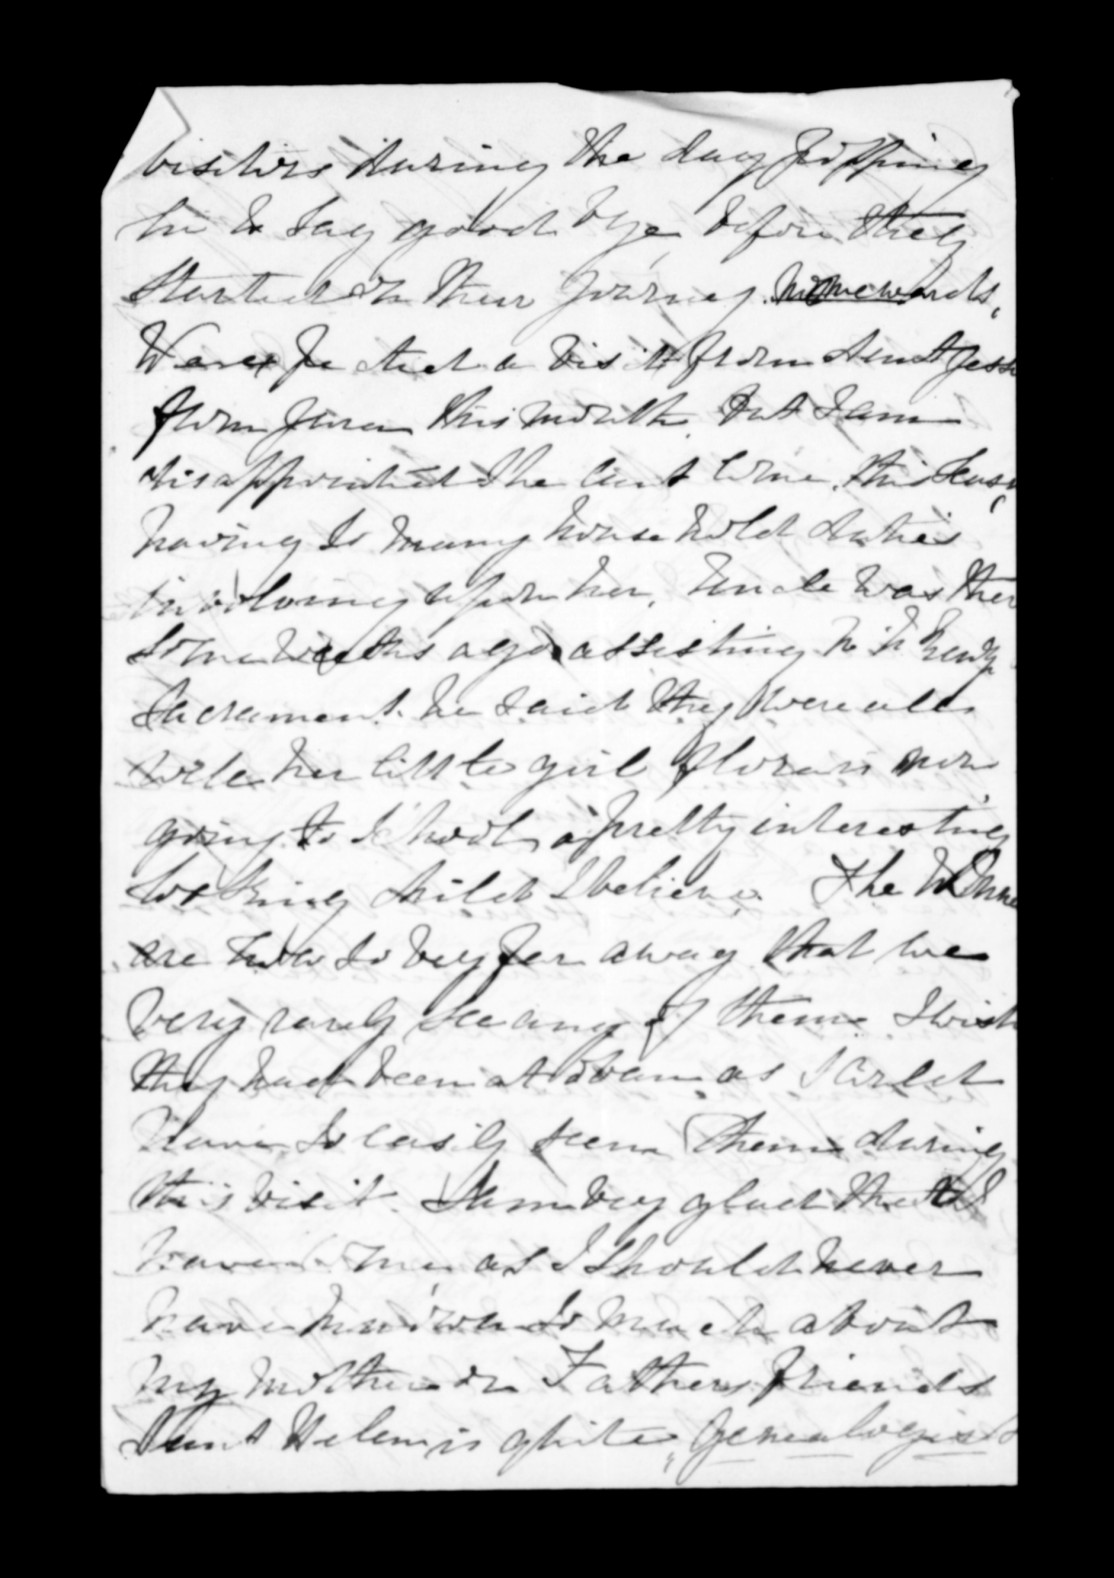 visitors during the day popping
in to say good bye before they
started on their journey homewards,
We expected a visit from Aunt Jessie
from Jura this month but I am
disappointed She cant come, this Season
having so many household duties
involving upon her, Uncle was there
some weeks ago assisting
Sacrament. he said they were all
well her little girl Flora is now
going to School, a pretty interesting
looking child I believe. The
are now so very far away that we
very rarely see any of them. I wish
they had been at Oban as I could
have so easily seen them during
this visit. I am very glad that I
have as I should never
have known so much about
my mother or Fathers friends
Aunt Helen is quite "Genealogist